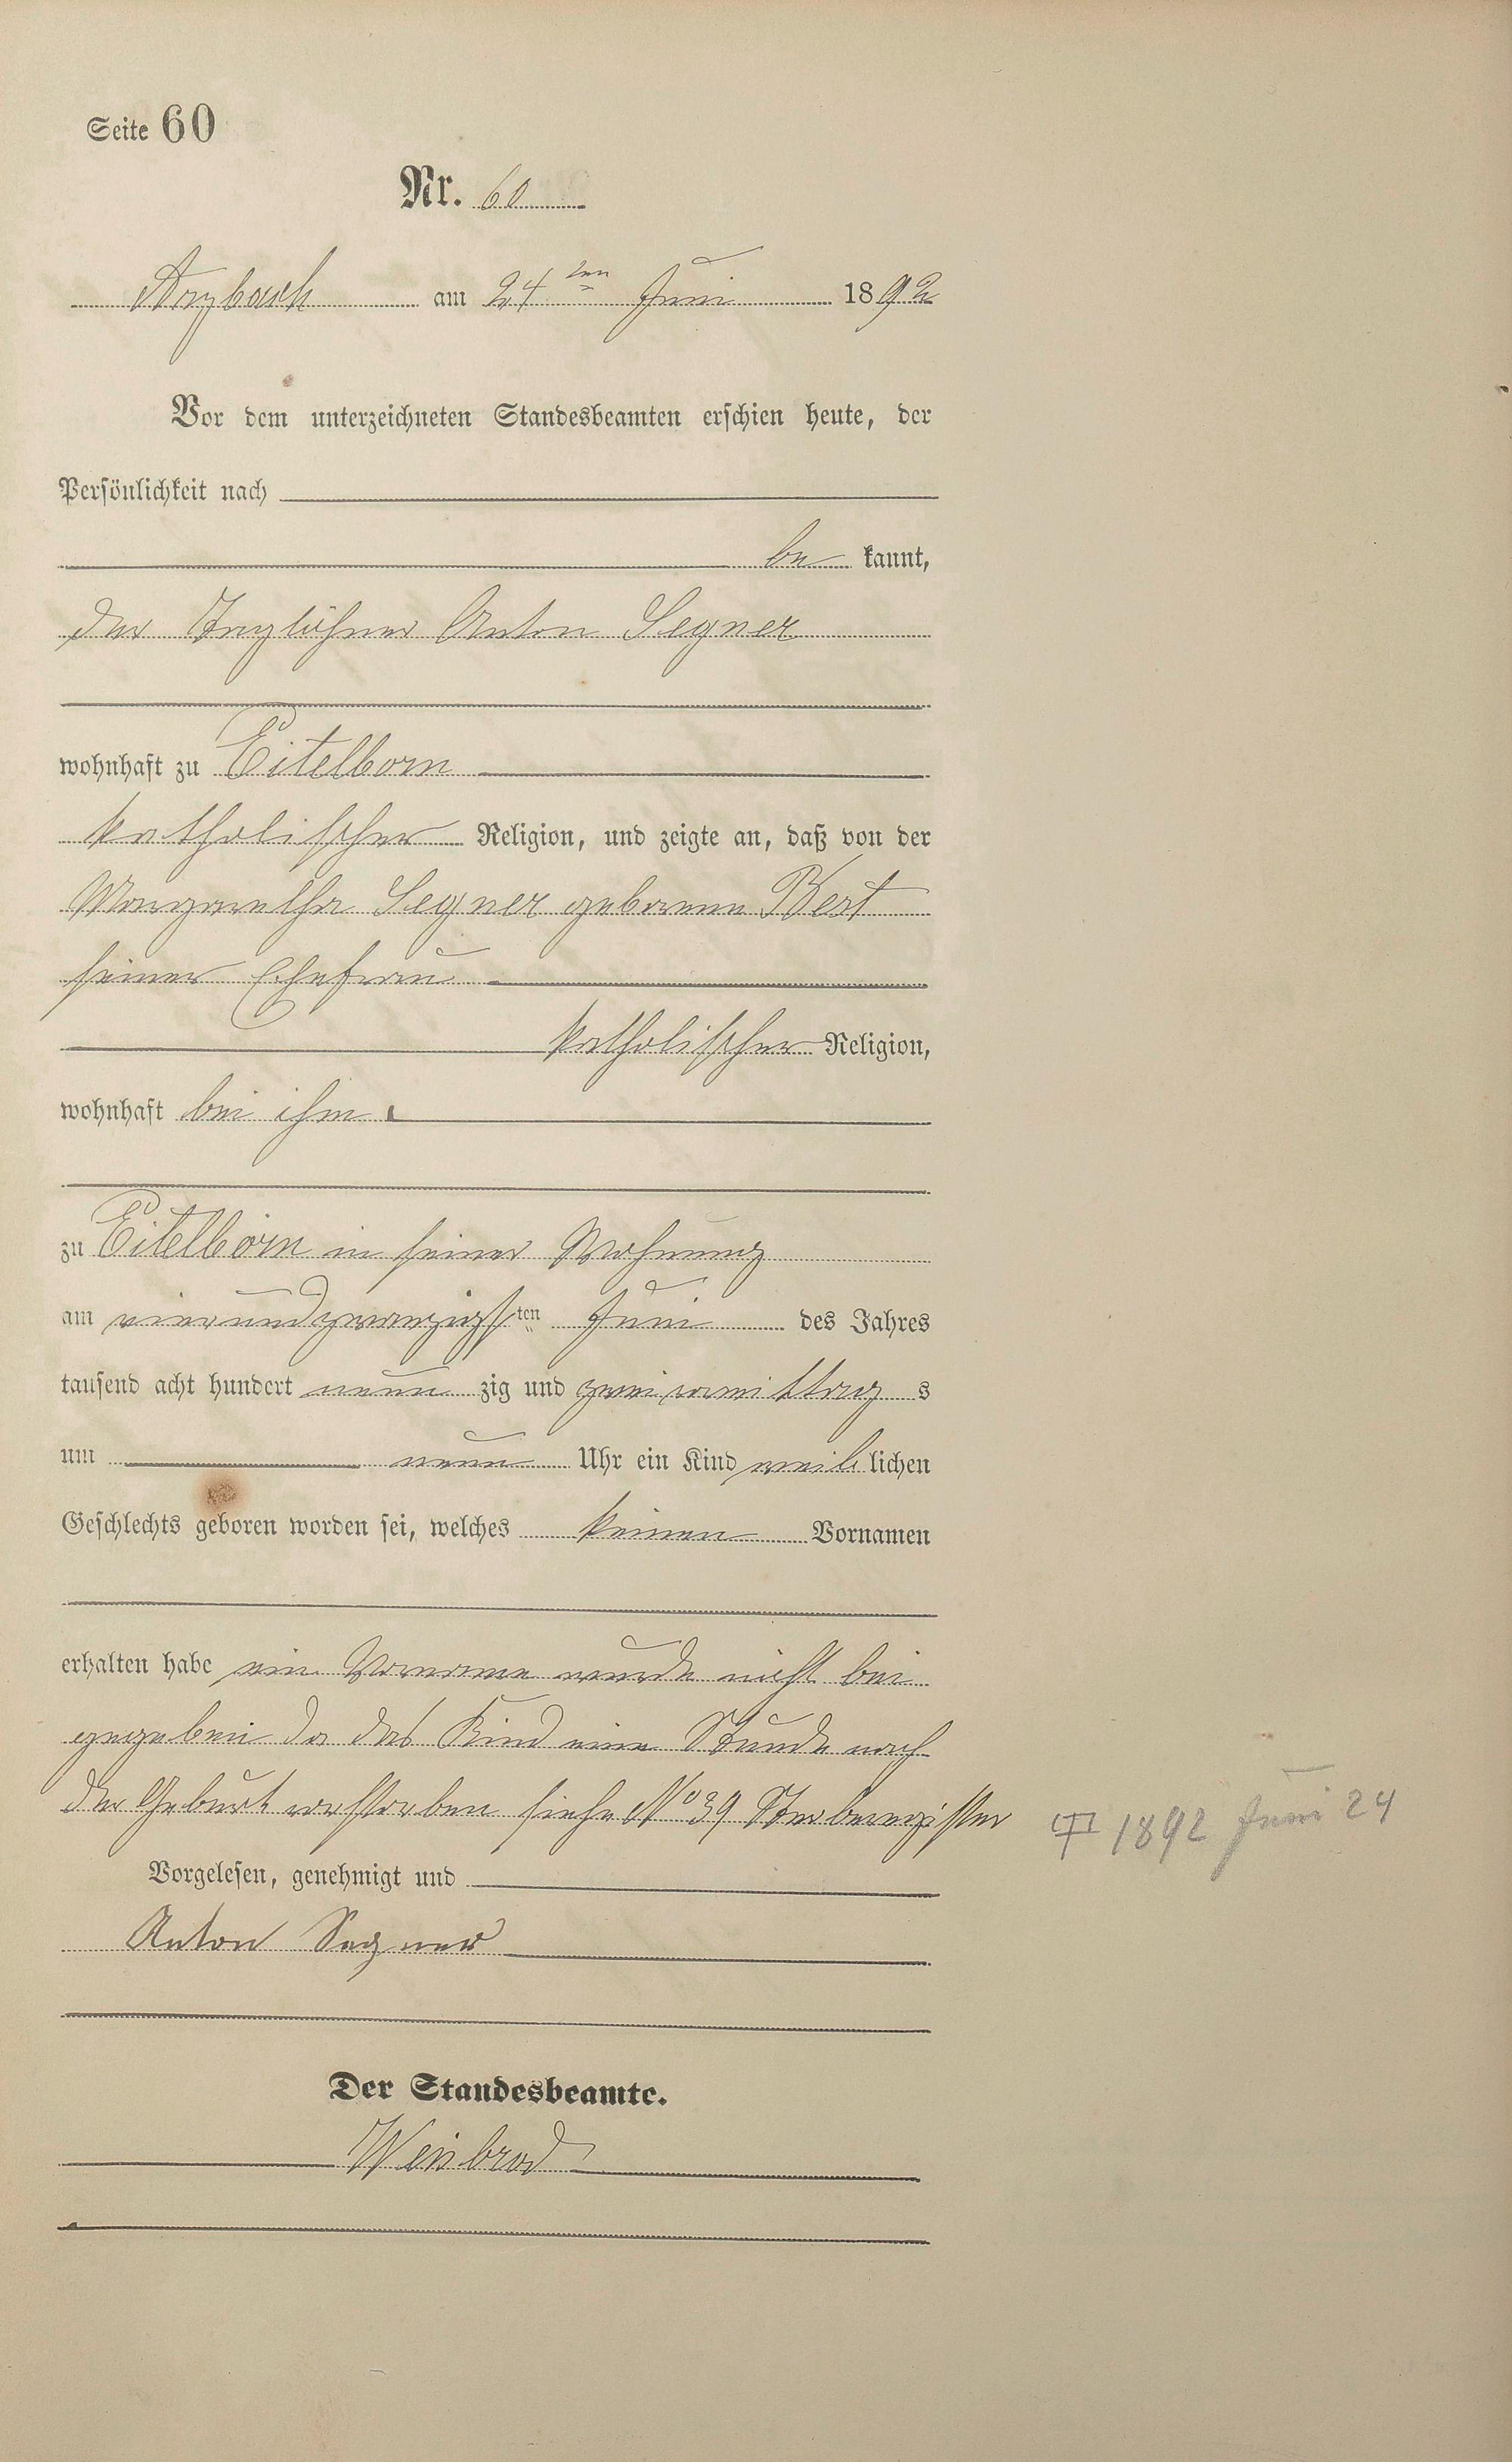 Seite 60
Nr. 60
Arzbach am 24ten Juni 1892
Vor dem unterzeichneten Standesbeamten erschien heute, der
Persönlichkeit nach
be kannt,
der Taglöhner Anton Segner
wohnhaft zu Eitelborn
katholischer Religion, und zeigte an, daß von der
Margaretha Segner geborene Best
seiner Ehefrau
katholischer Religion,
wohnhaft bei ihm
zu Eitelborn in seiner Wohnung
am vierundzwanzigsten Juni des Jahres
tausend acht hundert neun zig und zwei vormittag s
um neun Uhr ein Kind weib lichen
Geschlechts geboren worden sei, welches keinen Vornamen
erhalten habe ein Vorname wurde nicht bei
gegeben da das Kind eine Stunde nach
der Geburt verstorben siehe No 39 Sterberegister
1892 Juni 24
Vorgelesen, genehmigt und
Anton Segner
Der Standesbeamte.
Weisbrod